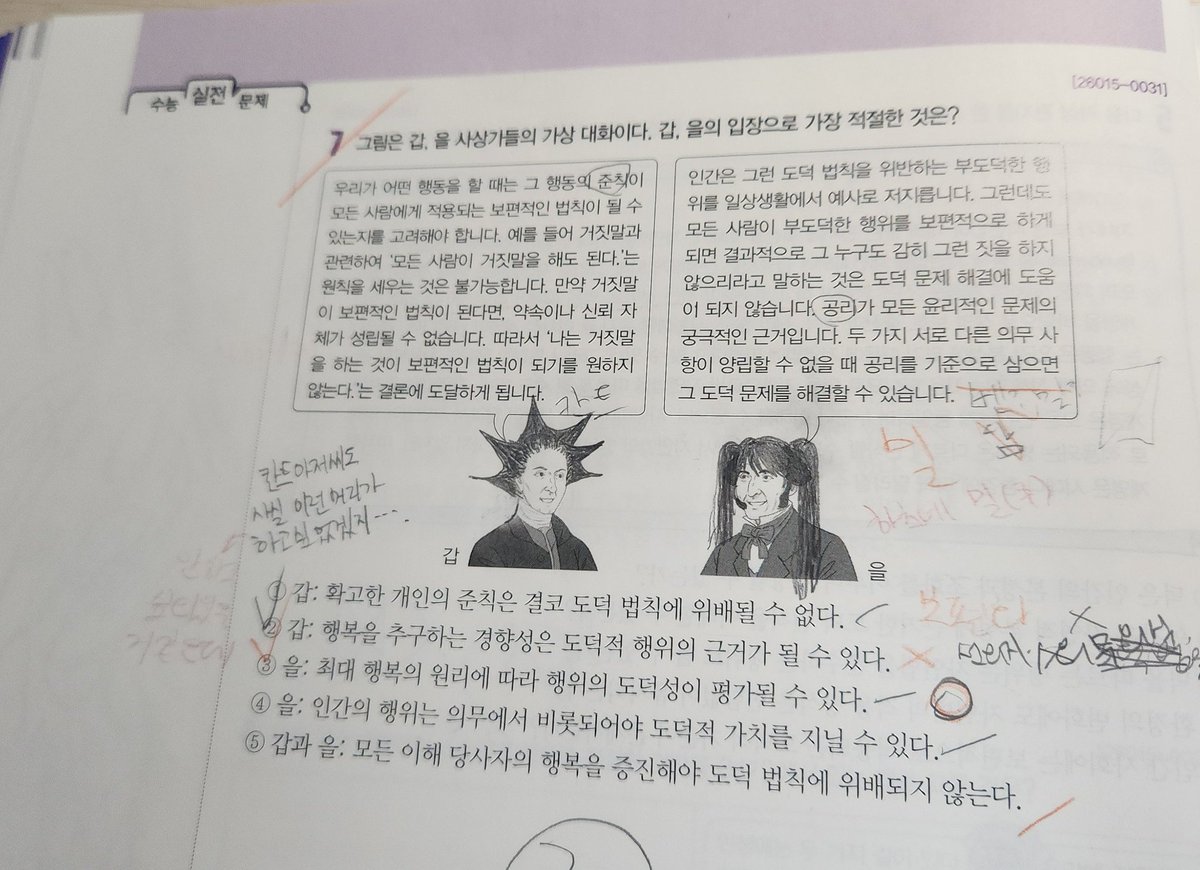 [26015-0031]
수능 실전 문제
7 그림은 갑, 을 사상가들의 가상 대화이다. 갑, 을의 입장으로 가장 적절한 것은?
우리가 어떤 행동을 할 때는 그 행동의 준칙이
모든 사람에게 적용되는 보편적인 법칙이 될 수
있는지를 고려해야 합니다. 예를 들어 거짓말과
관련하여 '모든 사람이 거짓말을 해도 된다.'는
원칙을 세우는 것은 불가능합니다. 만약 거짓말
이 보편적인 법칙이 된다면, 약속이나 신뢰 자
체가 성립될 수 없습니다. 따라서 '나는 거짓말
을 하는 것이 보편적인 법칙이 되기를 원하지
않는다.'는 결론에 도달하게 됩니다.
칸트
인간은 그런 도덕 법칙을 위반하는 부도덕한 행
위를 일상생활에서 예사로 저지릅니다. 그런데도
모든 사람이 부도덕한 행위를 보편적으로 하게
되면 결과적으로 그 누구도 감히 그런 짓을 하지
않으리라고 말하는 것은 도덕 문제 해결에 도움
이 되지 않습니다. 공리가 모든 윤리적인 문제의
궁극적인 근거입니다. 두 가지 서로 다른 의무 사
항이 양립할 수 없을 때 공리를 기준으로 삼으면
그 도덕 문제를 해결할 수 있습니다.
밀
칸트아저씨도
사실 이런 머리가
하고싶었겠지...
갑
을
① 갑: 확고한 개인의 준칙은 결코 도덕 법칙에 위배될 수 없다.
② 갑: 행복을 추구하는 경향성은 도덕적 행위의 근거가 될 수 있다.
③ 을: 최대 행복의 원리에 따라 행위의 도덕성이 평가될 수 있다.
④ 을: 인간의 행위는 의무에서 비롯되어야 도덕적 가치를 지닐 수 있다.
⑤ 갑과 을: 모든 이해 당사자의 행복을 증진해야 도덕 법칙에 위배되지 않는다.